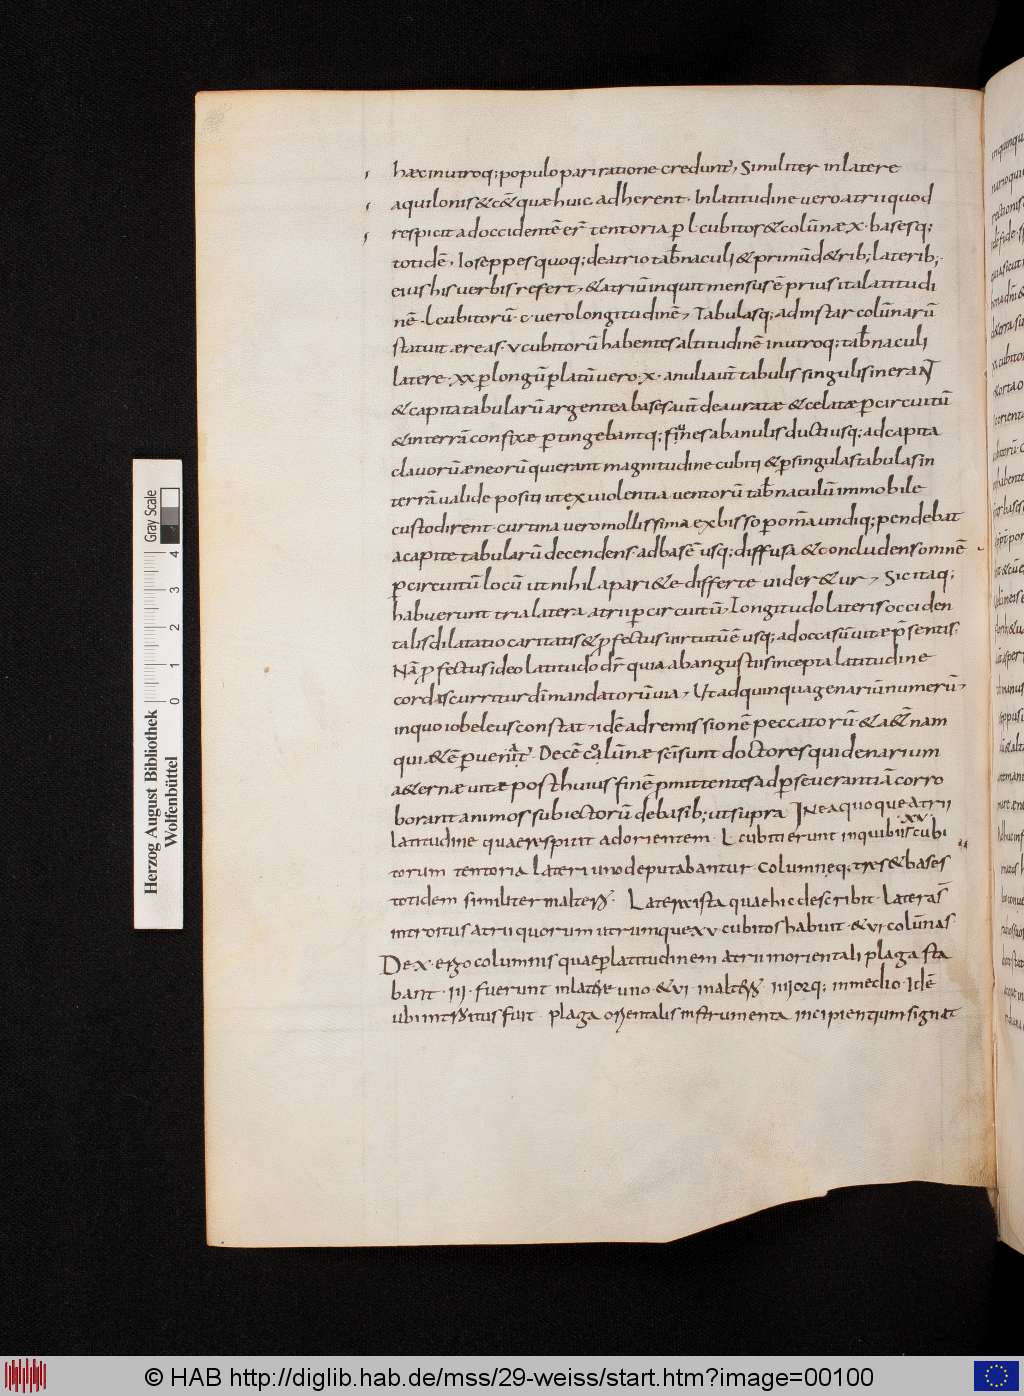 hæc in utroq; populo pari ratione credunt̄, Similiter in latere
aquilonis & c&̄ quæ huic adherent · In latitudine uero atrii quod
respicit ad occidentē er̄ tentoria ꝑ l · cubitos & colūnæ x · basesq;
totidē, Ioseppes quoq; de atrio tab̄naculi & primū d& rib; laterib;
eius his uerbis refert, & atriū inquit mensus ē prius ita latitudi
nē · l cubitorū · c · uero longitudinē, Tabulasq; ad instar colūnarū
statuit æreas · v cubitorū habentes altitudinē in utroq; tab̄naculi
latere · xx ꝑ longū ꝑ latū uero · x · anuli aut̄ tabulis singulis inerant̄
& capita tabularū argentea bases aut̄ deauratæ & celatæ ꝑ circuitū
& in terrā confixæ ꝑtingebantq; funes ab anulis ductiusq; ad capita
clauorū æneorū qui erant magnitudine cubiti & ꝑ singulas tabulas in
terrā ualide positi ut ex uiolentia uentorū tab̄naculū immobile
custodirent · curtina uero mollissima ex bisso ꝑ om̄a undiq; pendebat
a capite tabularū decendens · ad basē usq; diffusa & concludens omnē
ꝑ circuitū locū ut nihil a pari&e differre uider&ur, Sic itaq;
habuerunt tria latera atrii ꝑ circuitū, Longitudo lateris occiden
talis dilatatio caritatis & ꝓfectus uirtutū ē usq; ad occasū uitæ p̄sentis ·
Nā ꝓfectus ideo latitudo dr̄ quia ab angustiis incepta latitudine
cordis curritur dī mandatorū uia, Ut ad quinquagenariū numerū,
in quo iobeleus constat, idē ad remissionē peccatorū & a&̄nam
quiα&ē ꝑuenit̄ · Decē colūnæ sēi sunt doctores qui denarium
a&ernæ uitæ post huius finē ꝓmittentes ad ꝑseuerantiā corro
borant animos subiectorū de basib; ut supra In ea quoque atrii
latitudine quae respicit ad orientem · L cubiti erunt in quibus
·xv· cubi
torum tentoria lateri uno deputabantur columneq; tres & bases
totidem similiter in altero · Latere ista quae hic describit · Lateras̄
introitus atrii quorum utrumque xv · cubitos habuit · & vi · colūnas ·
De · x · ergo columnis quae ꝑ latitudinem atrii in orientali plaga sta
bant · iii · fuerunt in latere uno & vi · in altero · iiiiorq; in medio · Idē
ubi introitus fuit · plaga orientalis instrumenta incipientium signat
Herzog August Bibliothek
Wolfenbüttel
0 1 2 3 4
Gray Scale
© HAB http://diglib.hab.de/mss/29-weiss/start.htm?image=00100